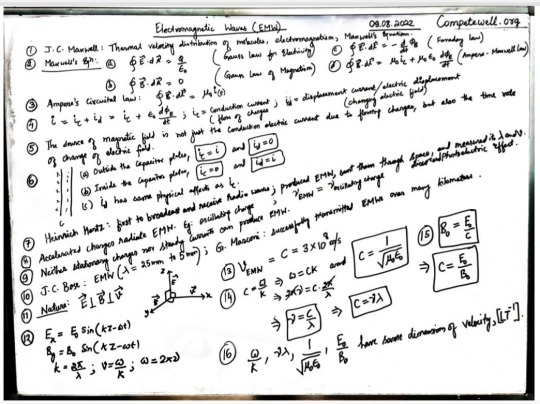 Electromagnetic Waves (EMW) 09.08.2022 Competewell.org
① J.C. Maxwell: Thermal velocity distribution of molecules, electromagnetism, Maxwell's Equation.
② Maxwell's Eqn: (a) ∮E⃗.dA⃗ = q/ε₀ (Gauss law for Electricity) (c) ∮E⃗.dl⃗ = -d/dt φB (Faraday law)
(b) ∮B⃗.dA⃗ = 0 (Gauss law of Magnetism) (d) ∮B⃗.dl⃗ = μ₀ic + μ₀ε₀ dφE/dt (Ampere-Maxwell law)
③ Ampere's Circuital law: ∮B⃗.dl⃗ = μ₀ i(t)
④ i = ic + id = ic + ε₀ dφE/dt ; ic = Conduction current ; id = displacement current/electric displacement
(flow of charges) (changing electric field)
⑤ The source of magnetic field is not just the conduction electric current due to flowing charges, but also the time rate
of change of electric field.
⑥ (a) Outside the capacitor plates, ic = i and id = 0
(b) Inside the Capacitor plates, ic = 0 and id = i
(c) id has same physical effects as ic.
⑦ Heinrich Hertz: first to broadcast and receive radio waves; produced EMW, sent them through space, and measured its λ and ν. discovered photoelectric effect.
⑧ Accelerated charges radiate EMW. Eg: oscillating charge ; νEMW = νoscillating charge
⑨ Neither stationary charges nor steady currents can produce EMW.
⑩ J.C. Bose: EMW (λ = 25mm to 5mm) ; G. Marconi: successfully transmitted EMWs over many kilometres.
⑪ Nature: E⃗ ⊥ B⃗ ⊥ V⃗
⑫ Ex = E₀ sin(kz-ωt)
By = B₀ Sin(kz-ωt)
k = 2π/λ ; v = ω/k ; ω = 2πν
⑬ VEMW = C = 3×10⁸ m/s
⑭ C = ω/k ⇒ ω = ck and C = 1/√μ₀ε₀
⇒ 2πν = C.2π/λ
⇒ ν = C/λ ⇒ C = νλ
⑮ B₀ = E₀/C
⇒ C = E₀/B₀
⑯ ω/k, νλ, 1/√μ₀ε₀, E₀/B₀ have same dimension of velocity, [LT⁻¹]